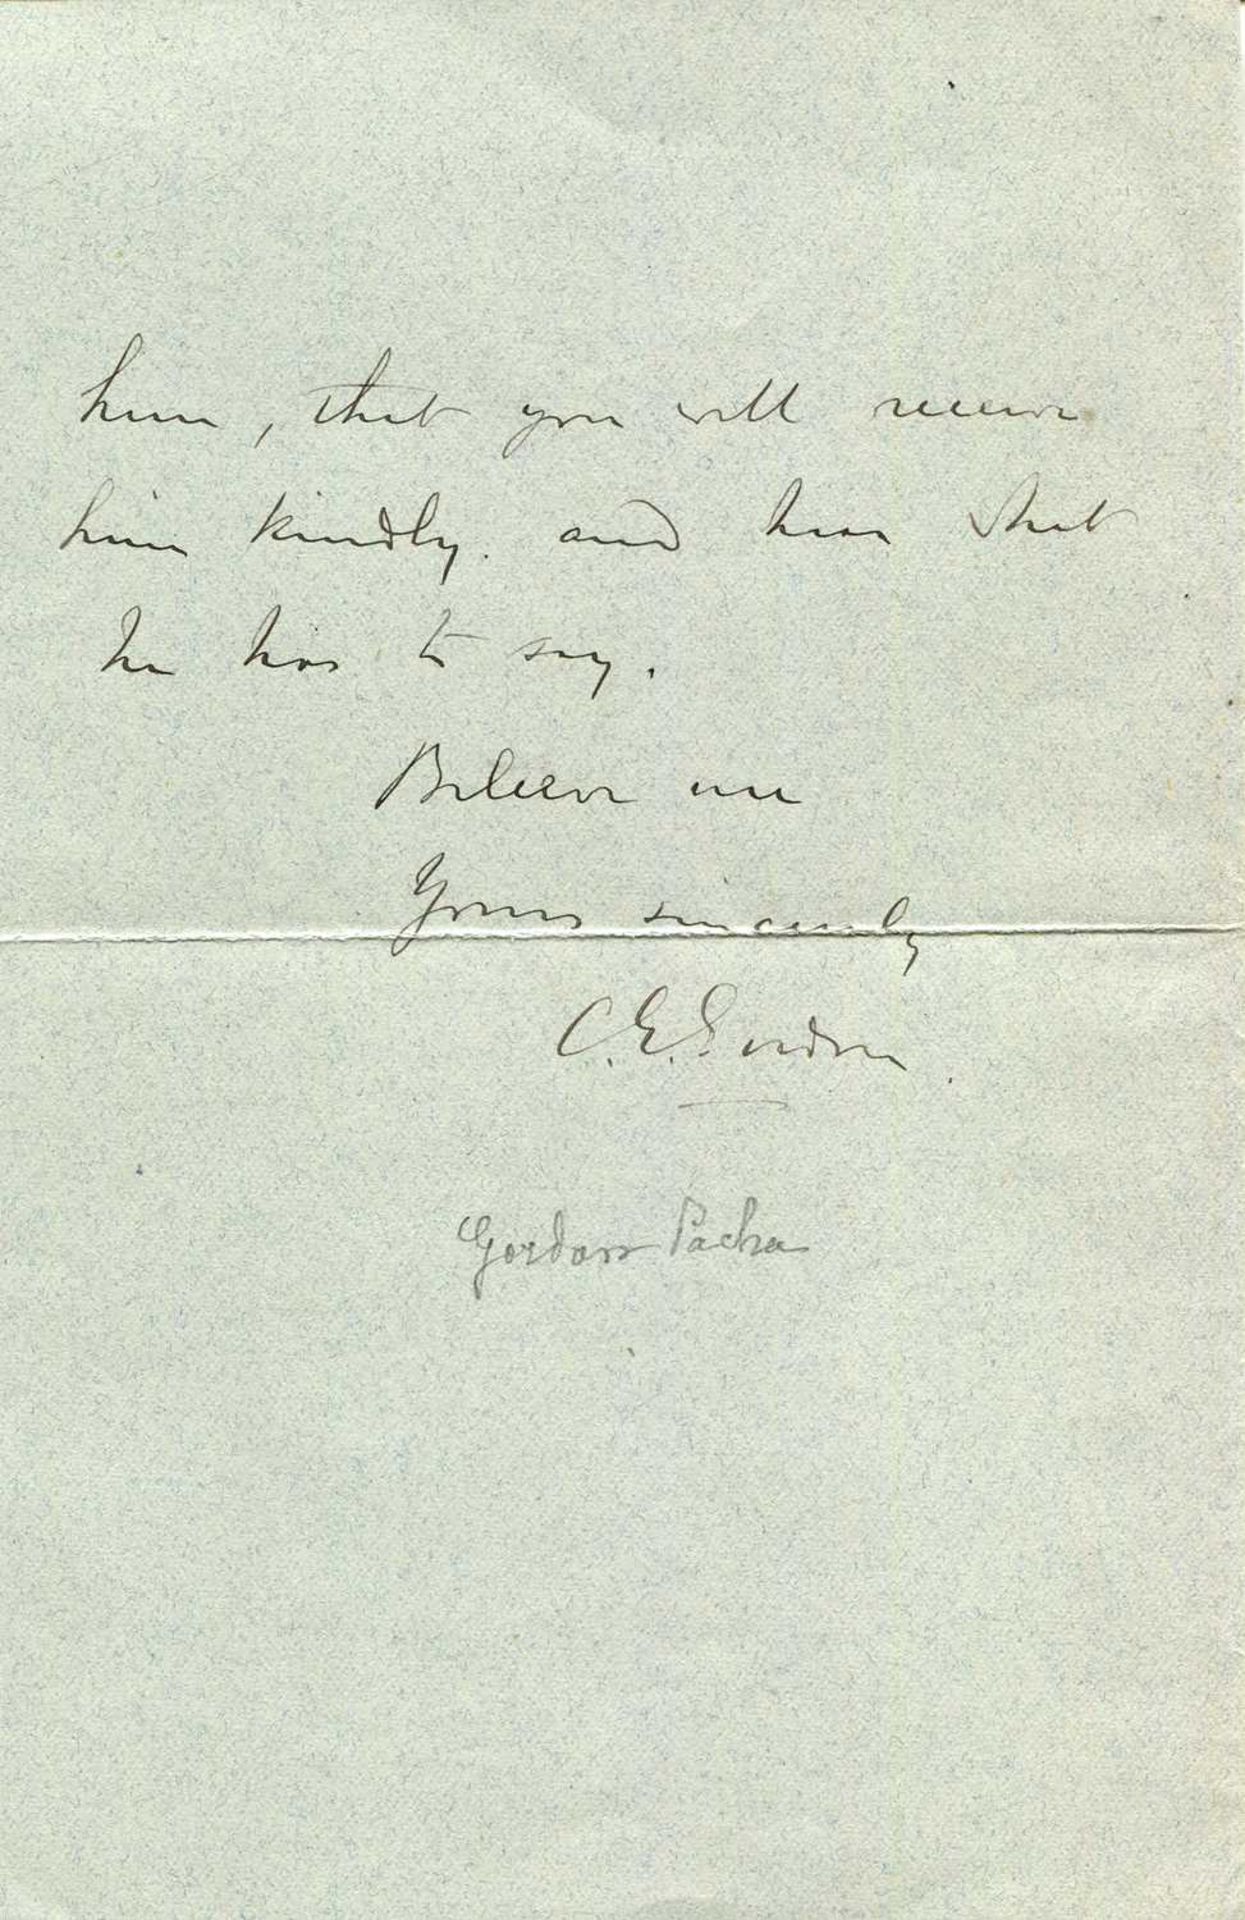 him, that you will receive
him kindly. and hear what
he has to say.
Believe me
Yours sincerely
C. E. Gordon
Gordon Pacha